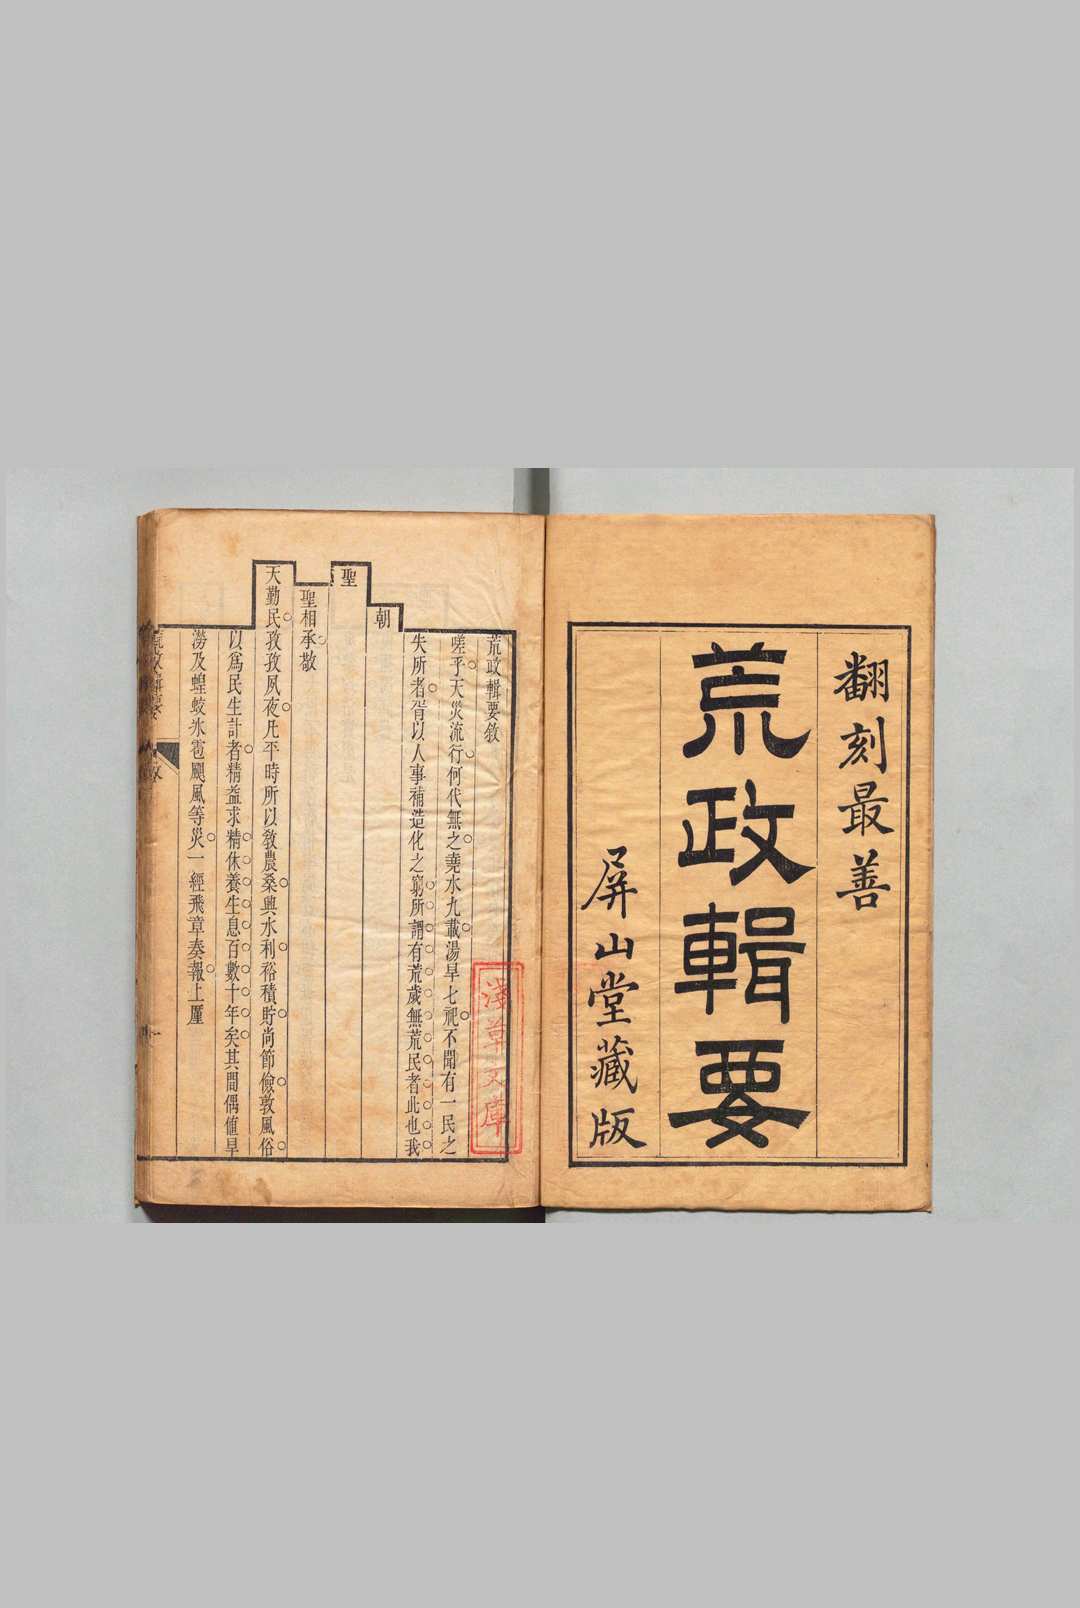 翻刻最善
荒政輯要
屏山堂藏版
荒政輯要敘
嗟乎天災流行何代無之堯水九載湯旱七祀不聞有一民之
失所者胥以人事補造化之窮所謂有荒歲無荒民者此也我
朝
聖
聖相承敬
天勤民孜孜夙夜凡平時所以敎農桑興水利裕積貯尚節儉敦風俗
以爲民生計者精益求精休養生息百數十年矣其間偶値旱
澇及蝗蛟氷雹颶風等災一經飛章奏報上厪
文庫